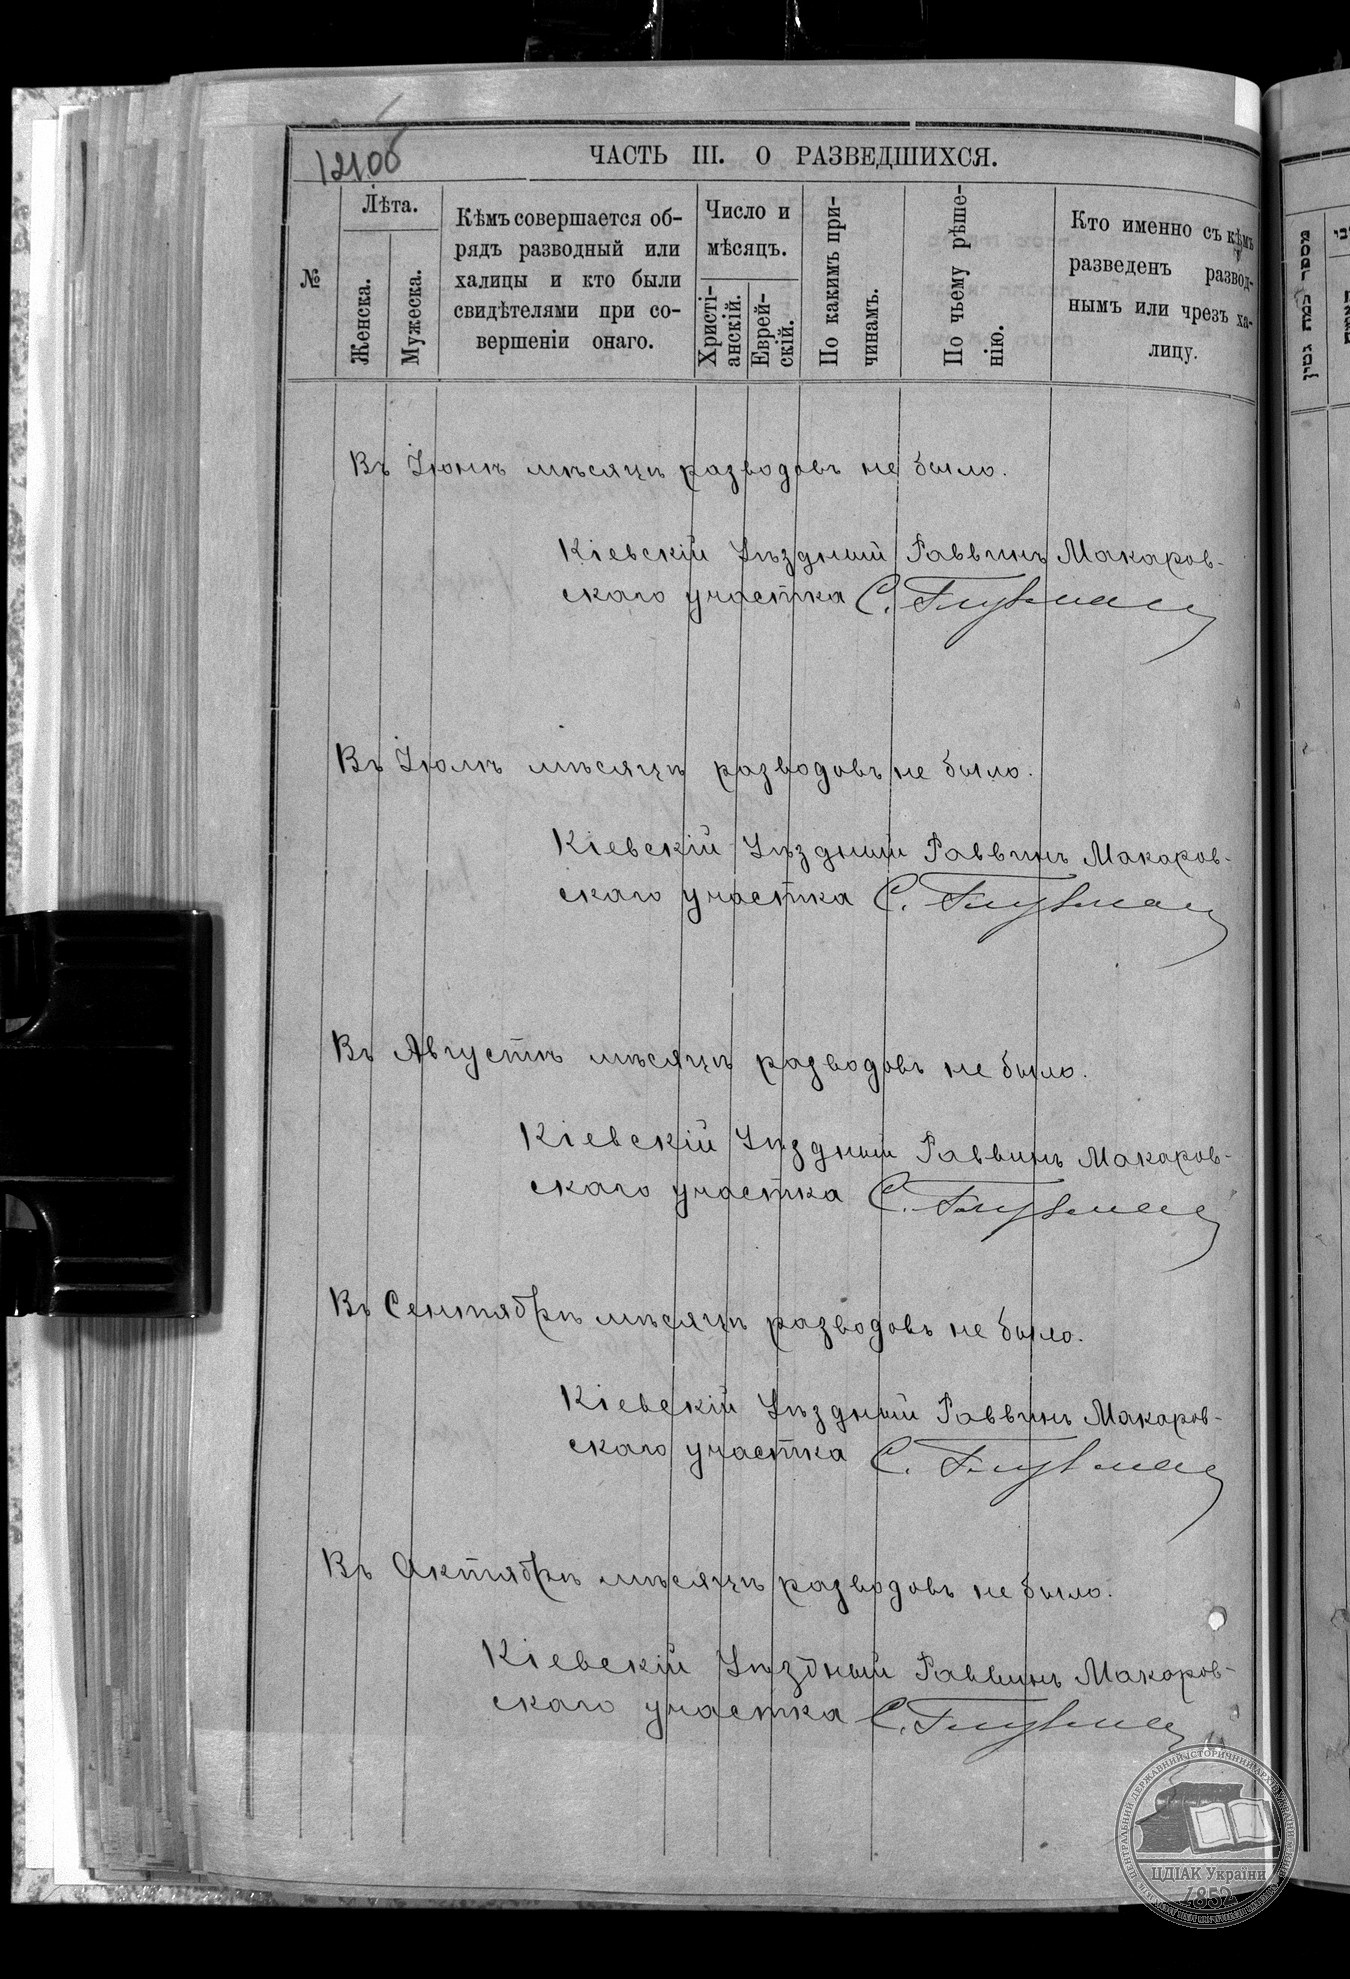 121об
ЧАСТЬ III. О РАЗВЕДШИХСЯ.
№
Лѣта.
Женска.
Мужеска.
Кѣмъ совершается об-
рядъ разводный или
халицы и кто были
свидѣтелями при со-
вершеніи онаго.
Число и
мѣсяцъ.
Христі-
анскій.
Еврей-
скій.
По какимъ при-
чинамъ.
По чьему рѣше-
нію.
Кто именно съ кѣмъ
разведенъ развод-
нымъ или чрезъ ха-
лицу.
Въ Іюнѣ мѣсяцѣ разводовъ не было.
Кіевскій Уѣздный Раввинъ Макаров-
скаго участка С.
Въ Іюлѣ мѣсяцѣ разводовъ не было.
Кіевскій Уѣздный Раввинъ Макаров-
скаго участка С.
Въ Августѣ мѣсяцѣ разводовъ не было.
Кіевскій Уѣздный Раввинъ Макаров-
скаго участка С.
Въ Сентябрѣ мѣсяцѣ разводовъ не было.
Кіевскій Уѣздный Раввинъ Макаров-
скаго участка С.
Въ Октябрѣ мѣсяцѣ разводовъ не было.
Кіевскій Уѣздный Раввинъ Макаров-
скаго участка С.
מספר כמה גטין
ЦЕНТРАЛЬНИЙ ДЕРЖАВНИЙ ІСТОРИЧНИЙ АРХІВ УКРАЇНИ
ЦДІАК України
1852